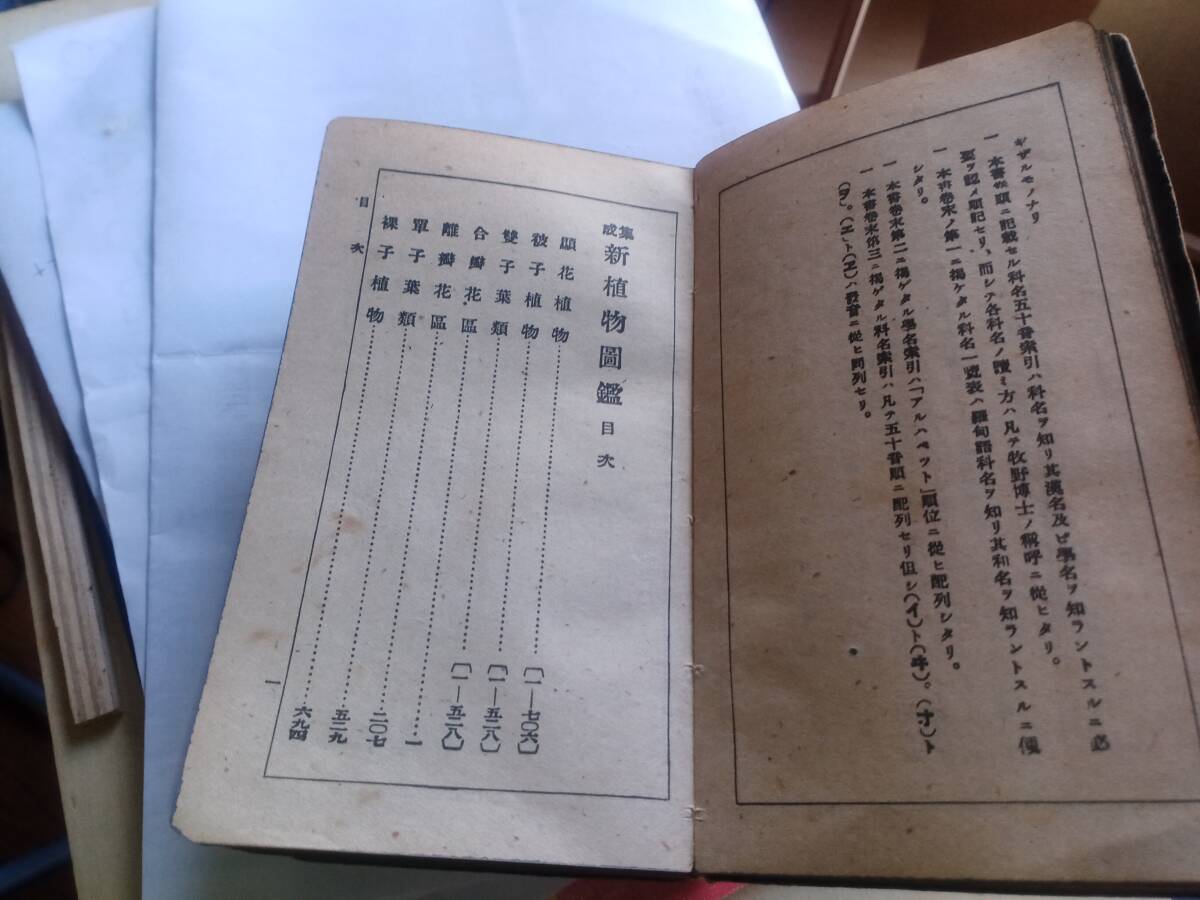 キザルモノナリ
一 本書卷頭ニ記載セル科名五十音索引ハ科名ヲ知リ其漢名及ビ學名ヲ知ラントスルニ必
要ヲ認メ順記セリ、而シテ各科名ノ讀ミ方ハ凡テ牧野博士ノ稱呼ニ從ヒタリ。
一 本書卷末ノ第一ニ揭ゲタル科名一覽表ハ羅甸語科名ヲ知リ其和名ヲ知ラントスルニ便
シタリ。
一 本書卷末第二ニ揭ゲタル學名索引ハ「アルハベット」順位ニ從ヒ配列シタリ。
一 本書卷末第三ニ揭ゲタル科名索引ハ凡テ五十音順ニ配列セリ但シ(イ)ト(ヰ)。(オ)ト
(ヲ)。(エ)ト(ヱ)ハ發音ニ從ヒ同列セリ。
集成 新植物圖鑑 目次
顯花植物………(一―七〇六)
被子植物………(一―五二八)
雙子葉類………(一―五二八)
合瓣花區………一
離瓣花區………二〇七
單子葉類………五二九
裸子植物………六九四
目次
一